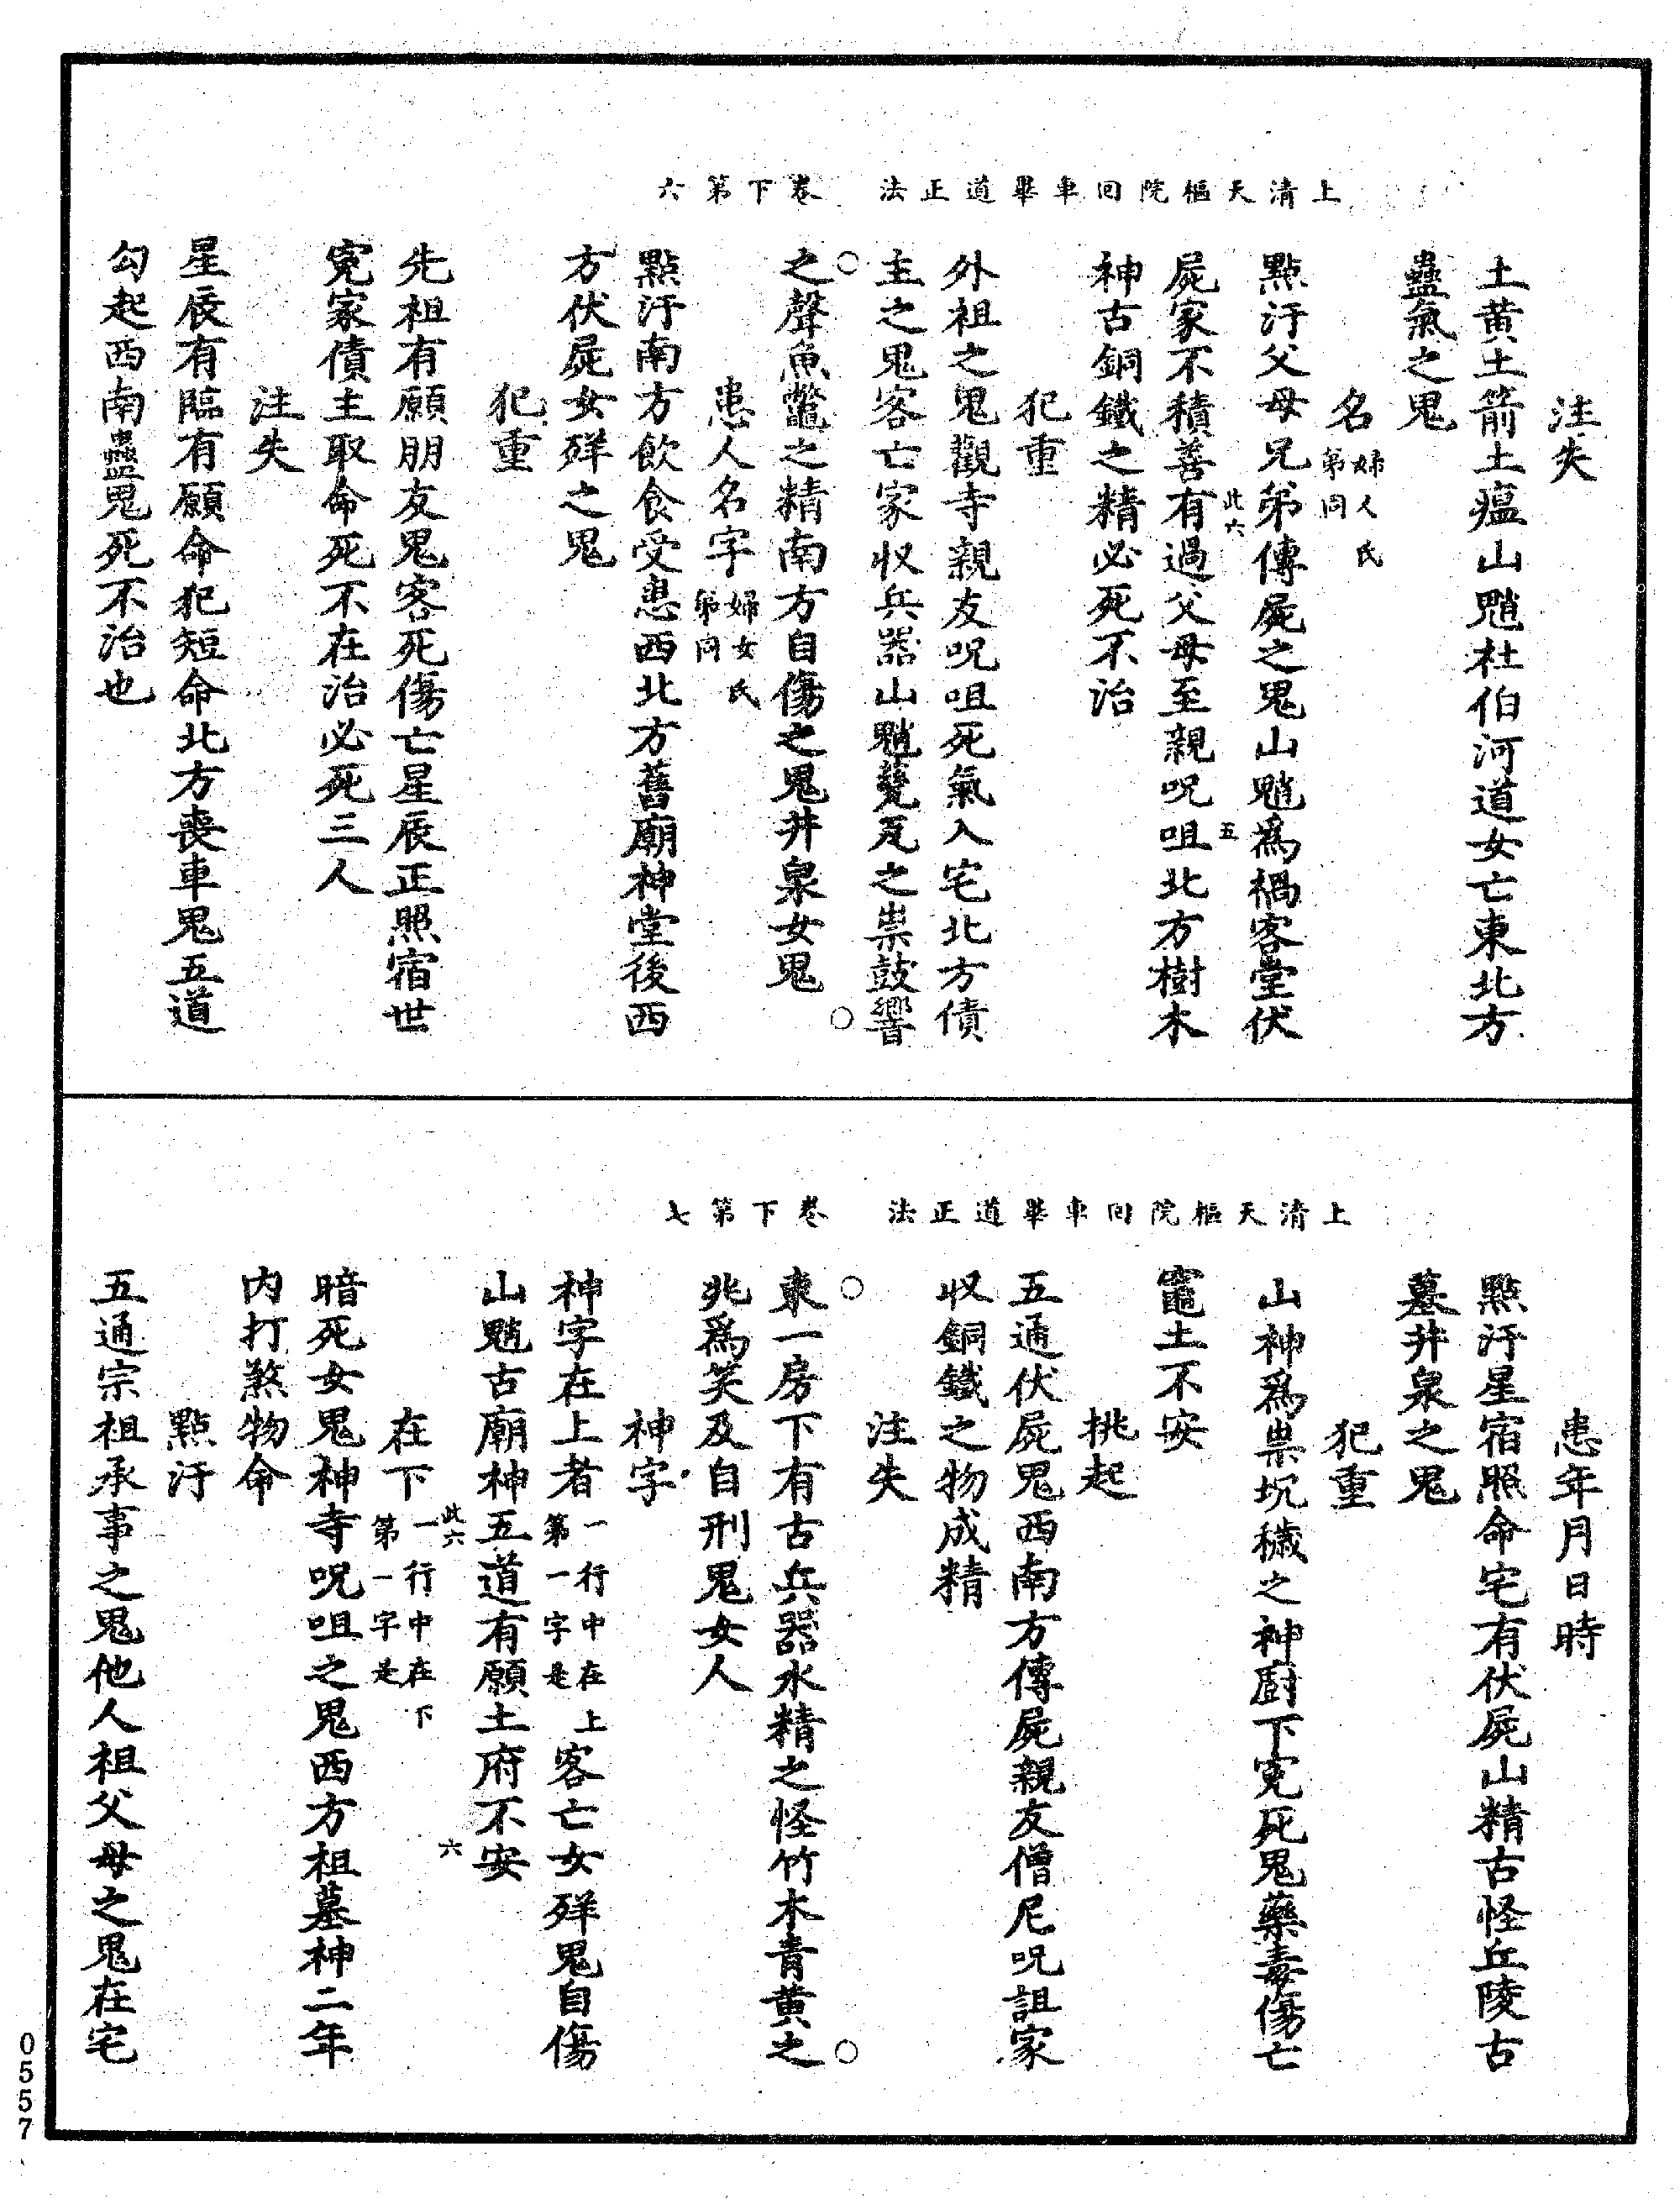 上清天樞院回車畢道正法　卷下第六
注失
土黃土箭土瘟山魈杜伯河道女亡東北方
蠱氣之鬼
名婦人氏第同
點汙父母兄弟傳屍之鬼山魈爲禍客堂伏
此六　五
屍家不積善有過父母至親呪咀北方樹木
神古銅鐵之精必死不治
犯重
外祖之鬼觀寺親友呪咀死氣入宅北方債
主之鬼客亡家收兵器山魈甃瓦之祟鼓響
○之聲魚鼈之精南方自傷之鬼井泉女鬼○
患人名字婦女氏第同
點汙南方飲食受患西北方舊廟神堂後西
方伏屍女殍之鬼
犯重
先祖有願朋友鬼客死傷亡星辰正照宿世
寃家債主取命死不在治必死三人
注失
星辰有臨有願命犯短命北方喪車鬼五道
勾起西南蠱鬼死不治也
上清天樞院回車畢道正法　卷下第七
患年月日時
點汙星宿照命宅有伏屍山精古怪丘陵古
墓井泉之鬼
犯重
山神爲祟坑穢之神廚下寃死鬼藥毒傷亡
竈土不安
挑起
五通伏屍鬼西南方傳屍親友僧尼呪詛家
收銅鐵之物成精
注失
○東一房下有古兵器水精之怪竹木青黃之○
兆爲笑及自刑鬼女人
神字
神字在上者一行中在上第一字是客亡女殍鬼自傷
山魈古廟神五道有願土府不安
此六　六
在下一行中在下第一字是
暗死女鬼神寺呪咀之鬼西方祖墓神二年
内打煞物命
點汙
五通宗祖承事之鬼他人祖父母之鬼在宅
0557